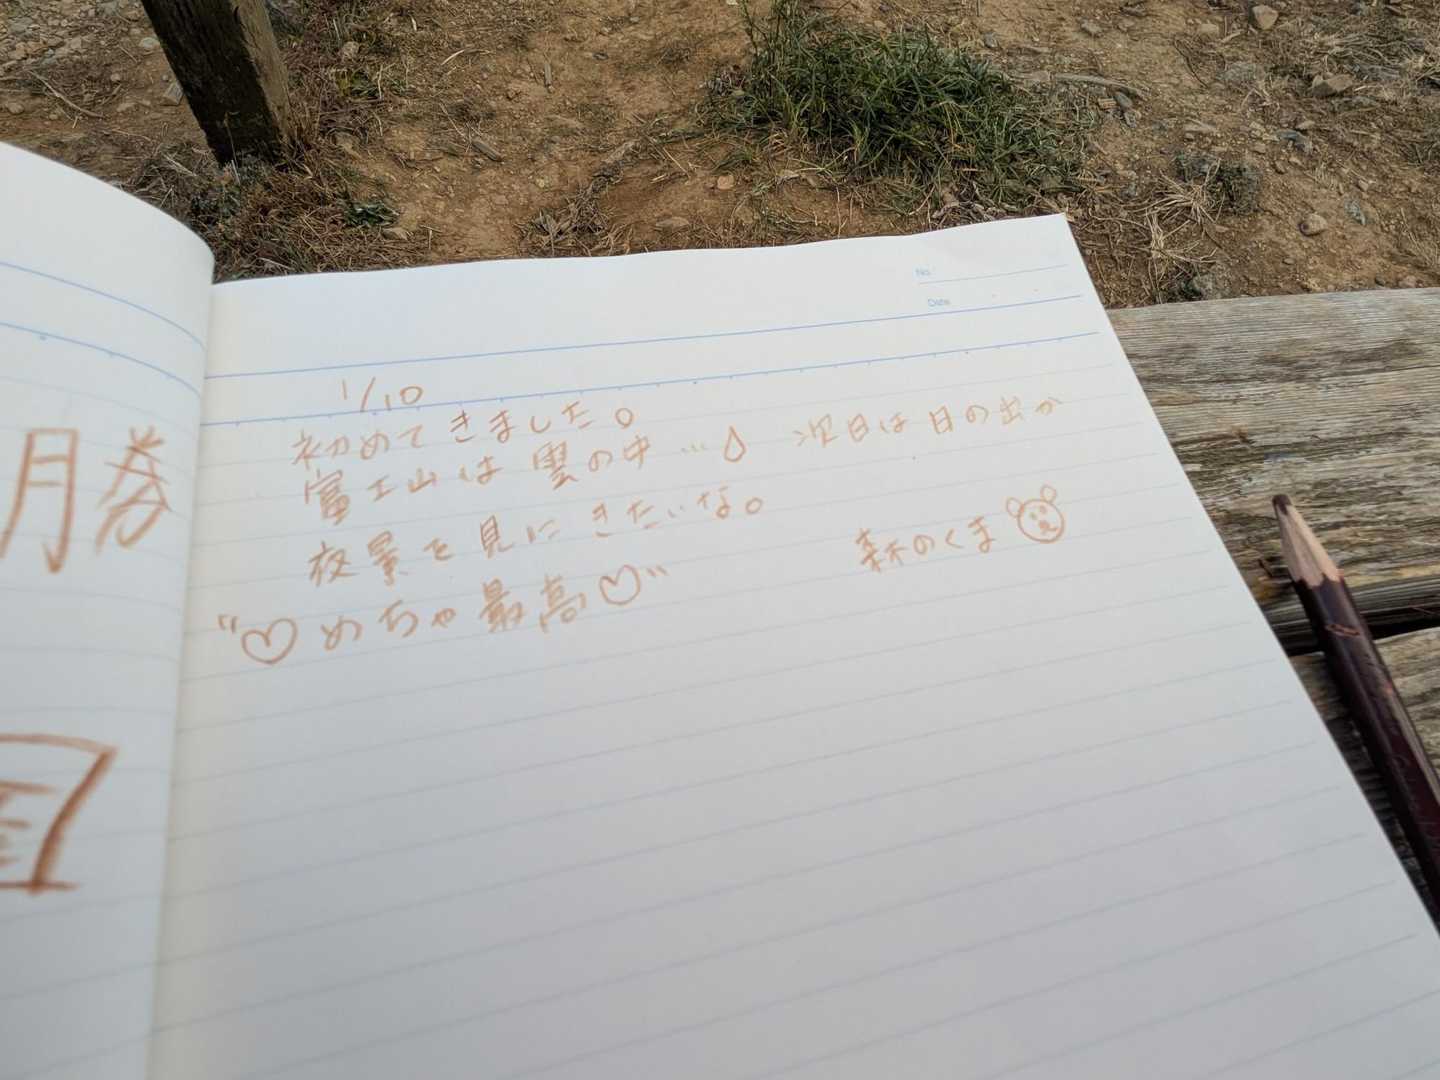 勝
No.
Date
1/10
初めてきました。
富士山は雲の中…　次回は日の出か
夜景を見にきたいな。
"♡めちゃ最高♡"
森のくま